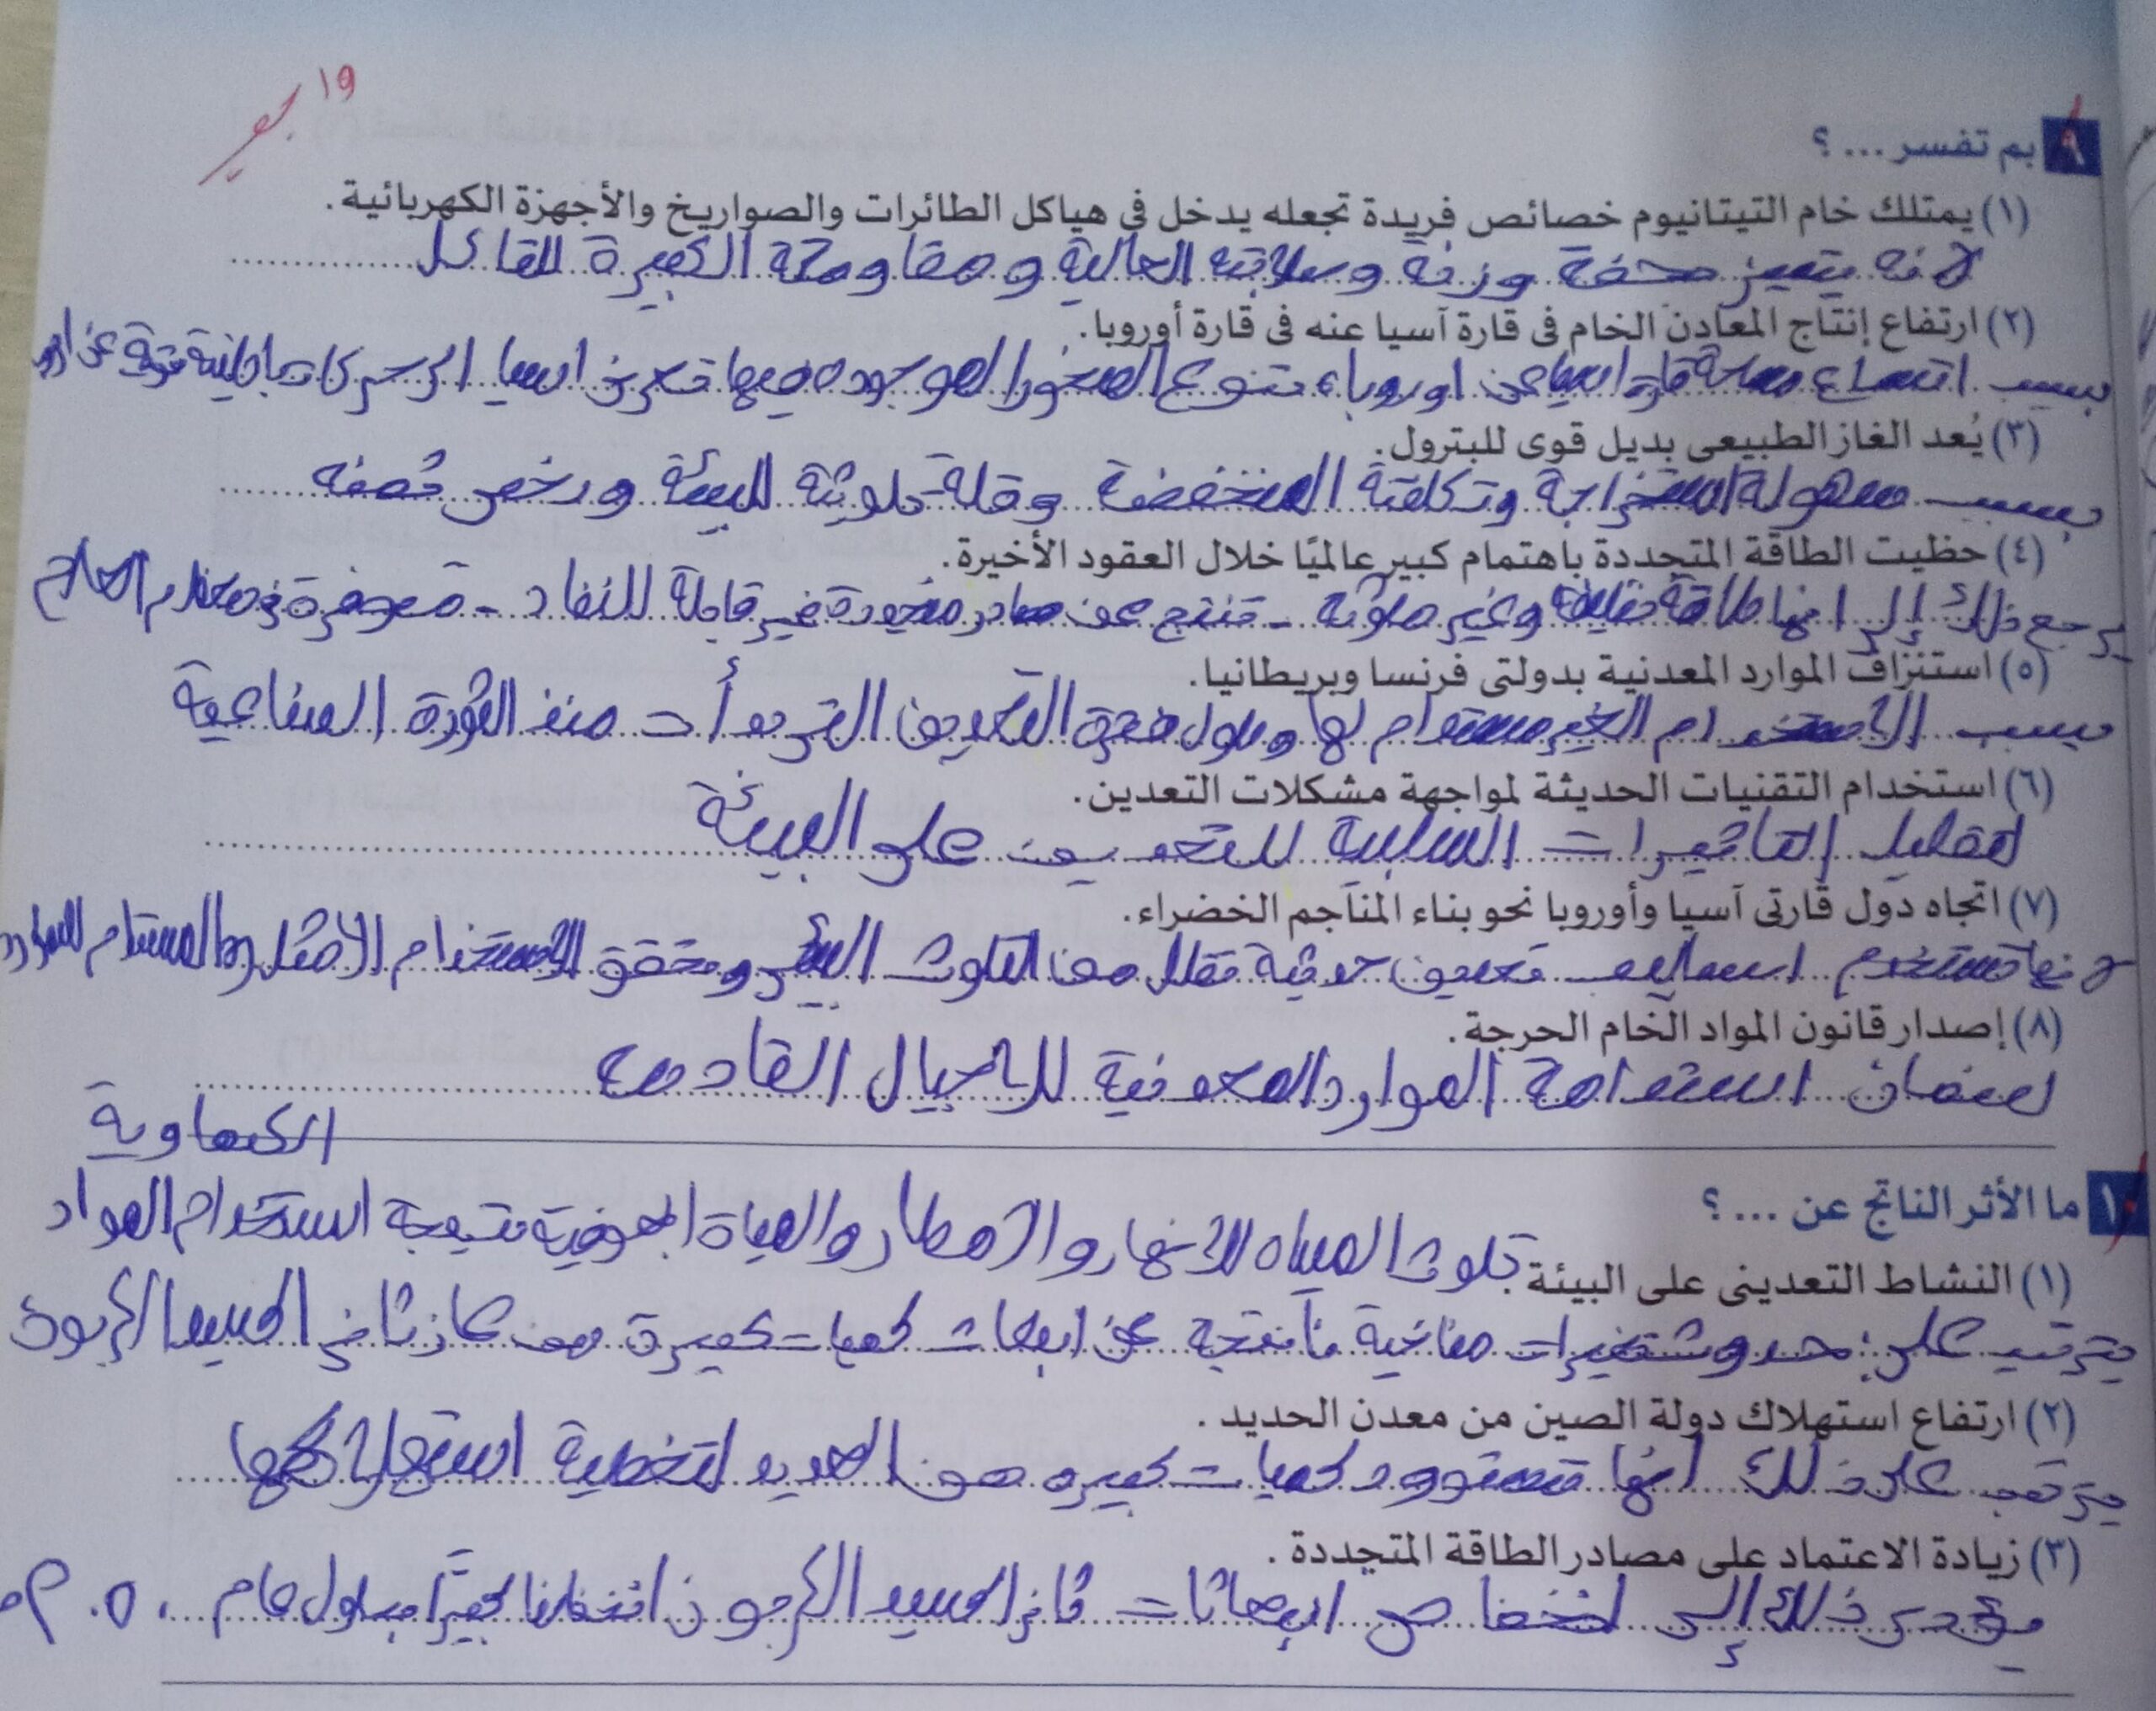 ١٩
٩ بم تفسر ... ؟
(١) يمتلك خام التيتانيوم خصائص فريدة تجعله يدخل في هياكل الطائرات والصواريخ والأجهزة الكهربائية.
لانه يتميز بخفة وزنة وصلابته العالية ومقاومتة الكبيرة للتاكل
(٢) ارتفاع إنتاج المعادن الخام في قارة آسيا عنه في قارة أوروبا.
بسبب اتساع مساحة قارة اسيا عن اوروبا، تنوع الصخور الموجوده فيها تعرض اسيا الى حركات باطنية قوية عن
(٣) يُعد الغاز الطبيعى بديل قوى للبترول.
بسبب سهولة استخراجة وتكلفتة المنخفضة وقلة تلويثة للبيئة ورخص ثمنه
(٤) حظيت الطاقة المتجددة باهتمام كبير عالميًا خلال العقود الأخيرة.
يرجع ذلك إلى انها طاقة نظيفة وغير ملوثه - تنتج عن مصادر متجددة غير قابلة للنفاد - متوفرة في معظم العالم
(٥) استنزاف الموارد المعدنية بدولتى فرنسا وبريطانيا.
بسبب الاستخدام الغير مستدام لها وطول فترة التعدين التى بدأت منذ الثورة الصناعية
(٦) استخدام التقنيات الحديثة لمواجهة مشكلات التعدين.
لتقليل التاثيرات السلبية للتعدين على البيئة
(٧) اتجاه دول قارتى آسيا وأوروبا نحو بناء المناجم الخضراء.
لانها تستخدم اساليب تعدين حديثة تقلل من التلوث البيئى وتحقق الاستخدام الامثل والمستدام للموارد
(٨) إصدار قانون المواد الخام الحرجة.
لضمان استدامة الموارد المعدنية للاجيال القادمه
١٠ ما الأثر الناتج عن ... ؟
(١) النشاط التعدينى على البيئة تلوث المياه الانهار والامطار والمياة الجوفية نتيجة استخدام المواد الكيماوية
يترتب على: حدوث تغيرات مناخية ناتجة عن انبعاث كميات كبيرة من غاز ثانى اكسيد الكربون
(٢) ارتفاع استهلاك دولة الصين من معدن الحديد.
يترتب على ذلك انها تستورد كميات كبيره من الحديد لتغطية استهلاكها
(٣) زيادة الاعتماد على مصادر الطاقة المتجددة.
يؤدى ذلك إلى انخفاض انبعاثات ثانى اكسيد الكربون انخفاضا كبيرًا بحلول عام ٢٠٥٠م